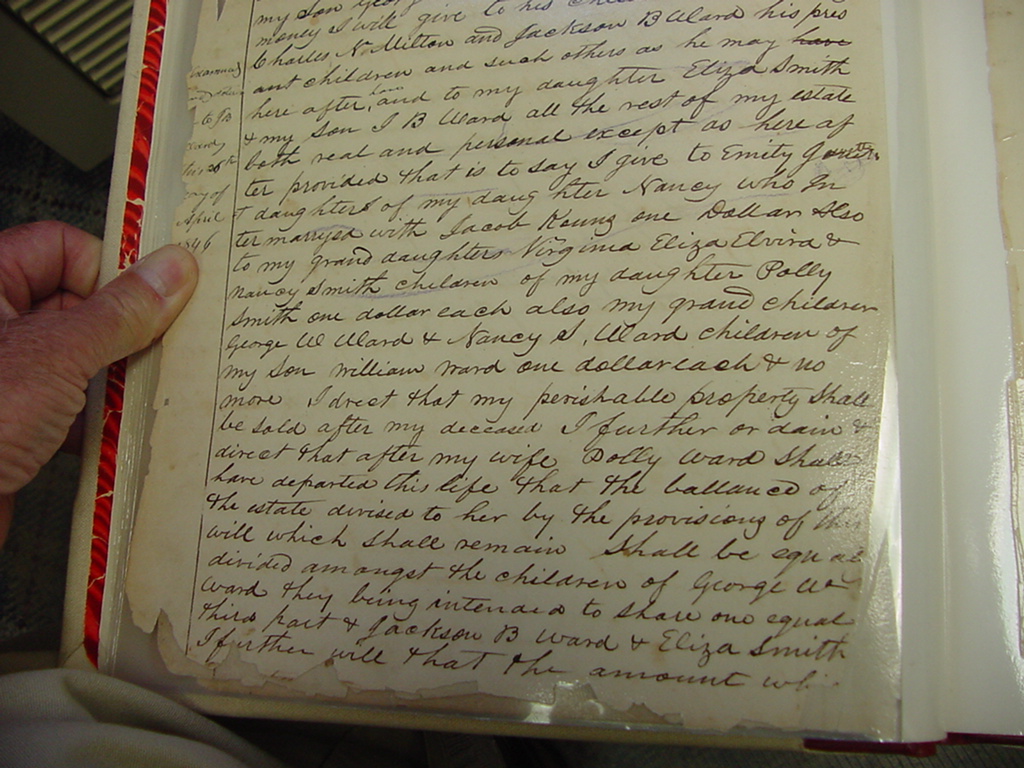 my son George
money I will give to his
Charles N. Milton and Jackson B Ward his pres
ant children and such others as he may have
here after have, and to my daughter Eliza Smith
& my son J B Ward all the rest of my estate
both real and personal except as here af
ter provided that is to say I give to Emily
daughter of my daughter Nancy who In
ter married with Jacob Koung one Dollar Also
to my grand daughters Virginia Eliza Elvira &
Nancy Smith children of my daughter Polly
Smith one dollar each also my grand children
George W Ward & Nancy S, Ward children of
my son William Ward one dollar each & no
more I drect that my perishable property Shall
be sold after my deceased I further or dain &
direct that after my wife Polly Ward Shall
have departed this life that the ballance of
the estate divised to her by the provisions of
will which shall remain Shall be equal
divided amongst the children of George W
Ward they being intended to share one equal
third part & Jackson B Ward & Eliza Smith
I further will that the amount
Examined
to JB
Ward
this 28th
day of
April
1846